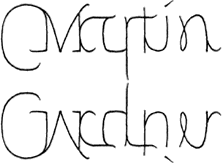 Martin
Gardner